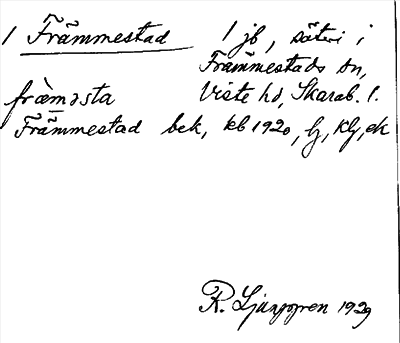 1 Främmestad 1 jb, säteri i
Främmestads sn,
främəsta Viste hd, Skarab. l.
Främmestad bek, kb 1920, lj, klj, ek
R. Ljunggren 1929